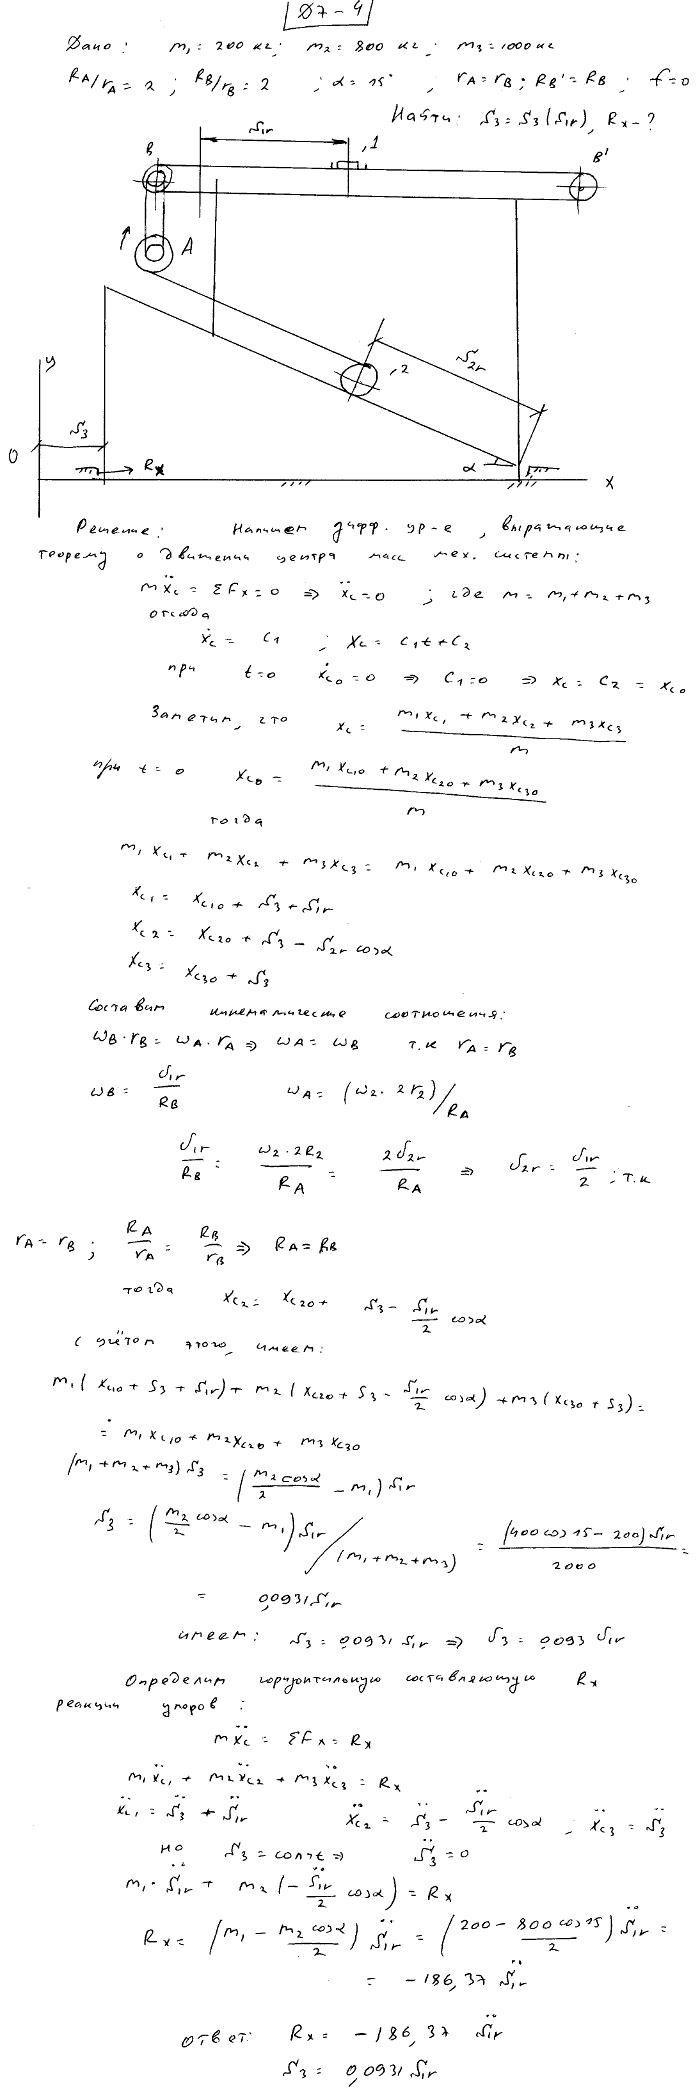 Д7-4
Дано: m₁ = 200 кг; m₂ = 800 кг; m₃ = 1000 кг
R_A/r_A = 2; R_B/r_B = 2; α = 15°; r_A = r_B; R_B' = R_B; f = 0
Найти: S₃ = S₃(S₁r), Rx - ?
S₁r
B
1
B'
A
y
2
S₂r
S₃
0
Rx
α
x
Решение: Напишем дифф. ур-е, выражающие
теорему о движении центра масс мех. системы:
mẍc = ΣFx = 0 ⇒ ẍc = 0; где m = m₁ + m₂ + m₃
отсюда
ẋc = C₁; xc = C₁t + C₂
при t = 0 ẋc₀ = 0 ⇒ C₁ = 0 ⇒ xc = C₂ = xc₀
Заметим, что xc = (m₁xc₁ + m₂xc₂ + m₃xc₃)/m
при t = 0 xc₀ = (m₁xc₁₀ + m₂xc₂₀ + m₃xc₃₀)/m
тогда
m₁xc₁ + m₂xc₂ + m₃xc₃ = m₁xc₁₀ + m₂xc₂₀ + m₃xc₃₀
xc₁ = xc₁₀ + S₃ + S₁r
xc₂ = xc₂₀ + S₃ - S₂r cosα
xc₃ = xc₃₀ + S₃
Составим кинематические соотношения:
ω_B · r_B = ω_A · r_A ⇒ ω_A = ω_B т.к r_A = r_B
ω_B = S₁r/R_B ω_A = (ω₂ · 2r₂)/R_A
S₁r/R_B = ω₂·2R₂/R_A = 2S₂r/R_A ⇒ S₂r = S₁r/2; т.к
r_A = r_B; R_A/r_A = R_B/r_B ⇒ R_A = R_B
тогда xc₂ = xc₂₀ + S₃ - S₁r/2 cosα
с учётом этого, имеем:
m₁(xc₁₀ + S₃ + S₁r) + m₂(xc₂₀ + S₃ - S₁r/2 cosα) + m₃(xc₃₀ + S₃) =
= m₁xc₁₀ + m₂xc₂₀ + m₃xc₃₀
(m₁ + m₂ + m₃)S₃ = (m₂cosα/2 - m₁)S₁r
S₃ = (m₂/2 cosα - m₁)S₁r/(m₁ + m₂ + m₃) = (400 cos 15 - 200)S₁r/2000 =
= 0,0931 S₁r
имеем: S₃ = 0,0931 S₁r ⇒ S₃ = 0,093 S₁r
Определим горизонтальную составляющую Rx
реакции упоров:
mẍc = ΣFx = Rx
m₁ẍc₁ + m₂ẍc₂ + m₃ẍc₃ = Rx
ẍc₁ = S̈₃ + S̈₁r ẍc₂ = S̈₃ - S̈₁r/2 cosα; ẍc₃ = S̈₃
но S₃ = const ⇒ S̈₃ = 0
m₁ · S̈₁r + m₂(-S̈₁r/2 cosα) = Rx
Rx = (m₁ - m₂cosα/2) S̈₁r = (200 - 800 cos 15/2) S̈₁r =
= -186,37 S̈₁r
ответ: Rx = -186,37 S̈₁r
S₃ = 0,0931 S₁r